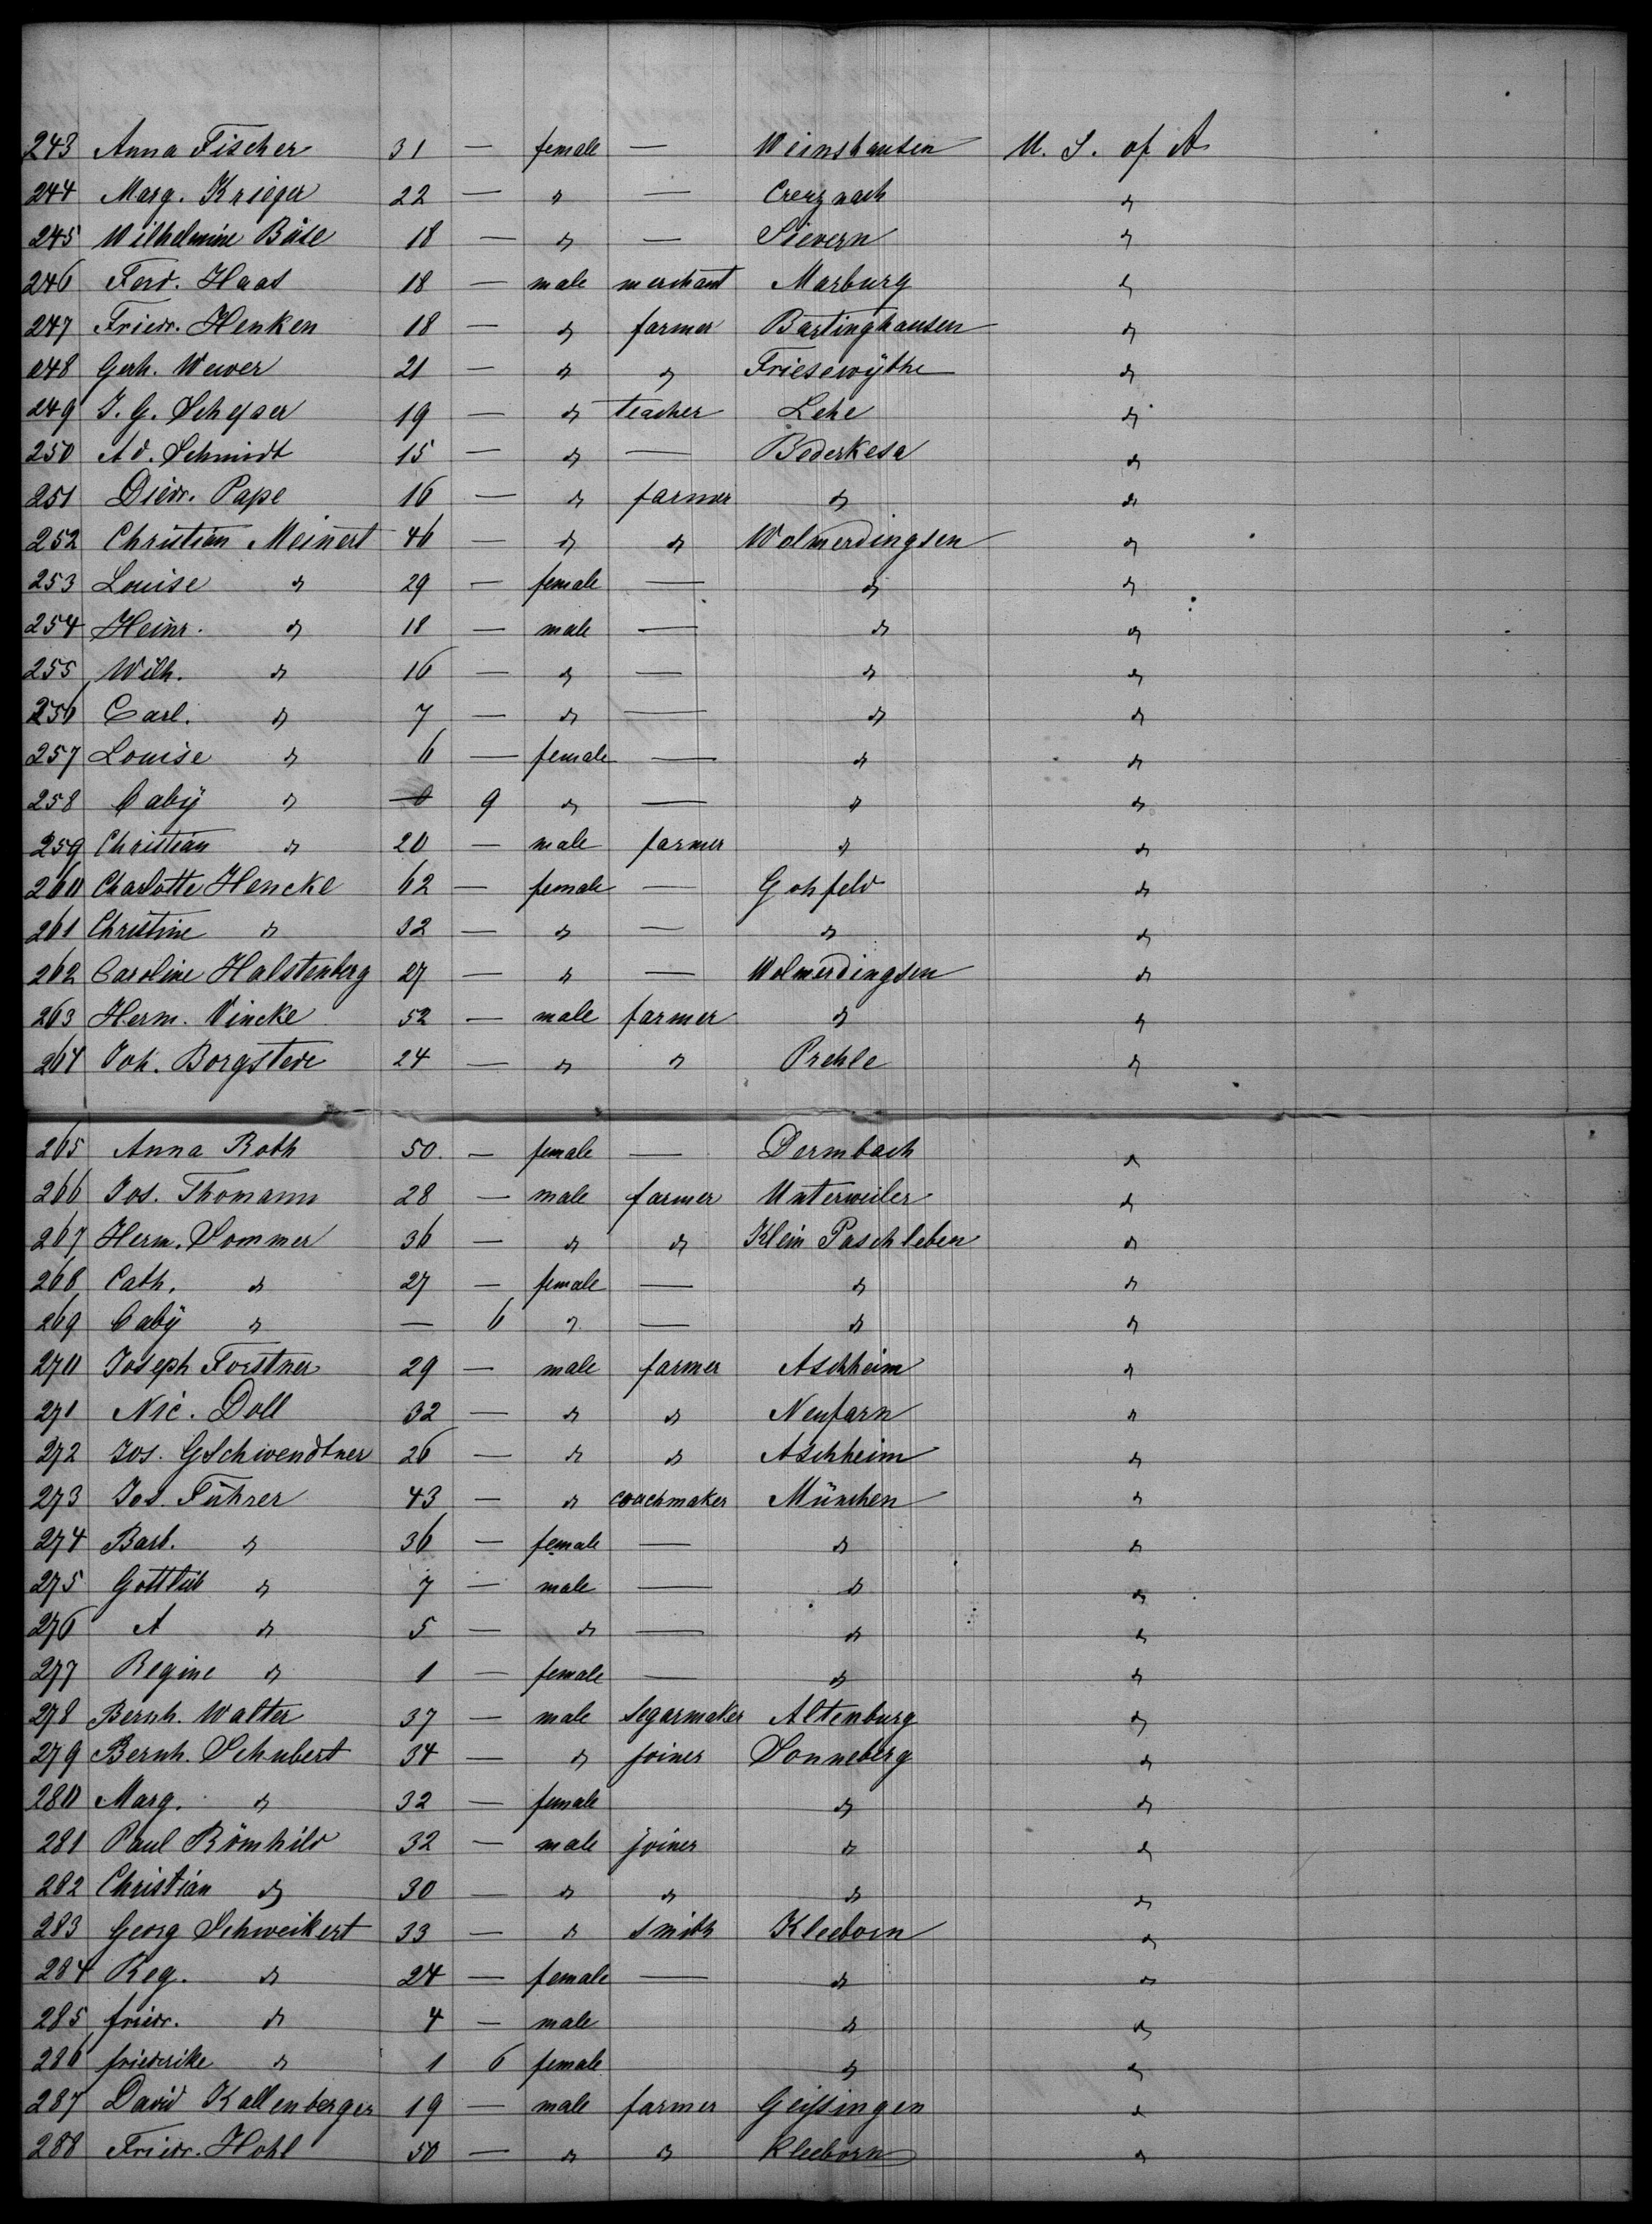 243 Anna Fischer 31 — female — Weinshausen U. S. of A
244 Marg. Krieger 22 — " — Creuznach "
245 Wilhelmine Büse 18 — " — Sievern "
246 Ferd. Haas 18 — male merchant Marburg "
247 Friedr. Henken 18 — " farmer Bartinghausen "
248 Gerh. Wewer 21 — " " Friesewÿthe "
249 J. G. Schefser 19 — " teacher Lehe "
250 Ad. Schmidt 15 — " — Bederkesa "
251 Diedr. Pape 16 — " farmer " "
252 Christian Meinert 46 — " " Wolmerdingsen "
253 Louise " 29 — female — " "
254 Heinr. " 18 — male — " "
255 Wilh. " 16 — " — " "
256 Carl. " 7 — " — " "
257 Louise " 6 — female — " "
258 Babÿ " — 9 " — " "
259 Christian " 20 — male farmer " "
260 Charlotte Hencke 62 — female — Gohfeld "
261 Christine " 32 — " — " "
262 Caroline Halstenberg 27 — " — Wolmerdingsen "
263 Herm. Vincke 52 — male farmer " "
264 Joh. Borgstede 24 — " " Prehle "
265 Anna Roth 50. — female — Dermbach "
266 Jos. Thomann 28 — male farmer Unterweiler "
267 Herm. Sommer 36 — " " Klein Paschleben "
268 Cath. " 27 — female — " "
269 Babÿ " — 6 " — " "
270 Joseph Forstner 29 — male farmer Aschheim "
271 Nic. Doll 32 — " " Neufarn "
272 Jos. GSchwendtner 26 — " " Aschheim "
273 Jos. Führer 43 — " coachmaker München "
274 Barb. " 36 — female — " "
275 Gottlieb " 7 — male — " "
276 A " 5 — " — " "
277 Regine " 1 — female — " "
278 Bernh. Walter 37 — male Segarmaker Altenburg "
279 Bernh. Schubert 34 — " joiner Sonneberg "
280 Marg. " 32 — female " "
281 Paul Römhild 32 — male joiner " "
282 Christian " 30 — " " " "
283 Georg Schweikert 33 — " Smith Kleeborn "
284 Reg. " 24 — female — " "
285 friedr. " 4 — male " "
286 friederike " 1 6 female " "
287 David Kallenberger 19 — male farmer Geißingen "
288 Friedr. Hohl 50 — " " Kleeborn "